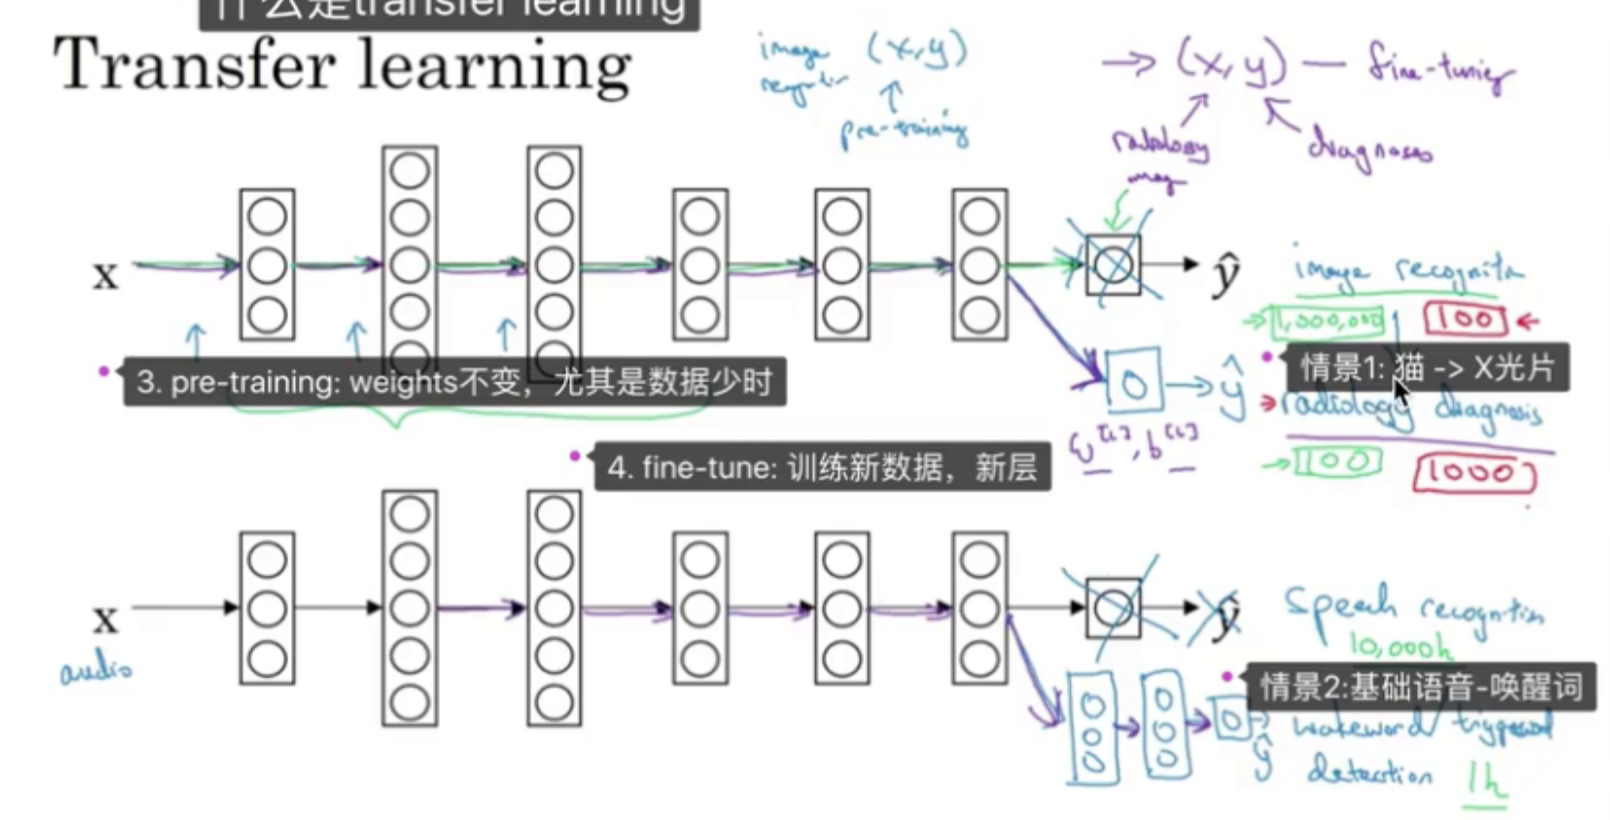 什么是transfer learning
Transfer learning
image (x,y)
pre-training
→ (x,y) — fine-tuning
radiology
diagnoses
x
ŷ
image
1,000,000 100
3. pre-training: weights不变，尤其是数据少时
情景1: 猫 -> X光片
ŷ
radiology diagnosis
w[L], b[L]
4. fine-tune: 训练新数据，新层
100 1000
x
audio
ŷ
Speech recognition
10,000h
情景2:基础语音-唤醒词
wakeword/
ŷ
detection 1h